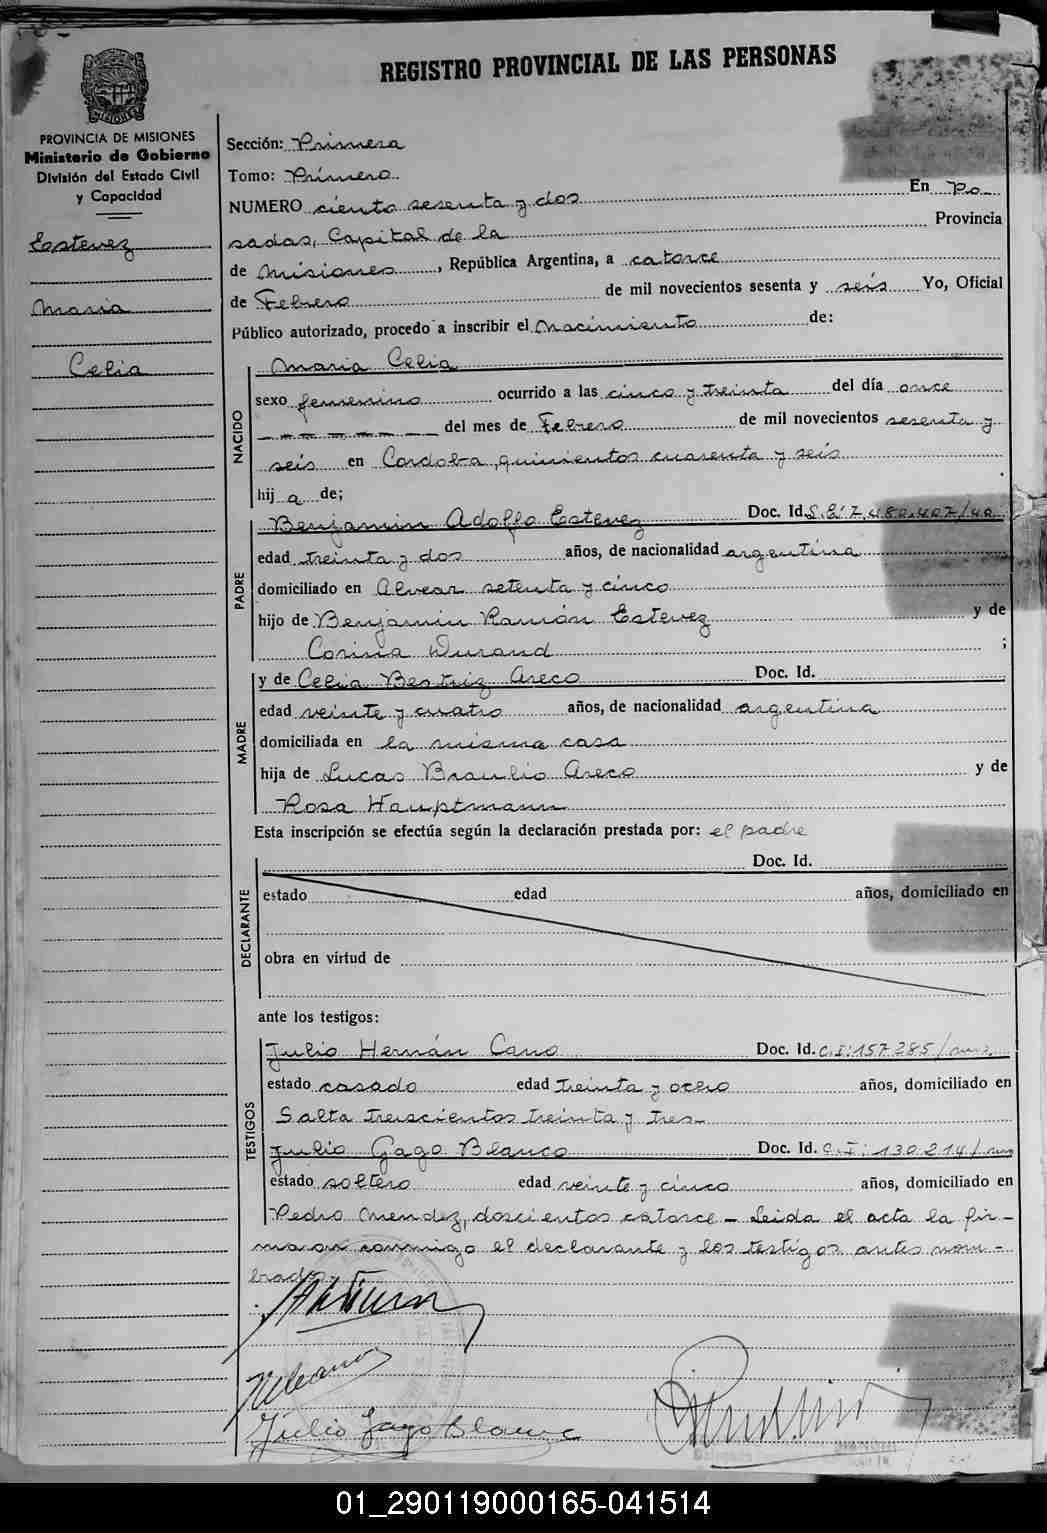 REGISTRO PROVINCIAL DE LAS PERSONAS
MISIONES
PROVINCIA DE MISIONES
Ministerio de Gobierno
División del Estado Civil
y Capacidad
Estevez
Maria
Celia
Sección: Primera
Tomo: Primero
NUMERO ciento sesenta y dos En Po-
sadas, Capital de la Provincia
de Misiones, República Argentina, a catorce
de Febrero de mil novecientos sesenta y seis Yo, Oficial
Público autorizado, procedo a inscribir el Nacimiento de:
NACIDO
Maria Celia
sexo femenino ocurrido a las cinco y treinta del día once
del mes de Febrero de mil novecientos sesenta y
seis en Cordoba, quinientos cuarenta y seis
hij a de;
PADRE
Benjamin Adolfo Estevez Doc. Id. L.E: 7.480.407/
edad treinta y dos años, de nacionalidad argentina
domiciliado en Alvear setenta y cinco
hijo de Benjamin Ramón Estevez y de
Corina Durand ;
MADRE
y de Celia Beatriz Areco Doc. Id.
edad veinte y cuatro años, de nacionalidad argentina
domiciliada en la misma casa
hija de Lucas Braulio Areco y de
Rosa Hauptmann
Esta inscripción se efectúa según la declaración prestada por: el padre
DECLARANTE
Doc. Id.
estado edad años, domiciliado en
obra en virtud de
ante los testigos:
TESTIGOS
Julio Hernán Cano Doc. Id. C.I: 157285/mns.
estado casado edad treinta y ocho años, domiciliado en
Salta trescientos treinta y tres-
Julio Gago Blanco Doc. Id. C.I: 130.214/mns
estado soltero edad veinte y cinco años, domiciliado en
Pedro Mendez, doscientos catorce - Leida el acta la fir-
maon conmigo el declarante y los testigos antes nom-
brados.
Julio Gago Blanco
01_290119000165-041514